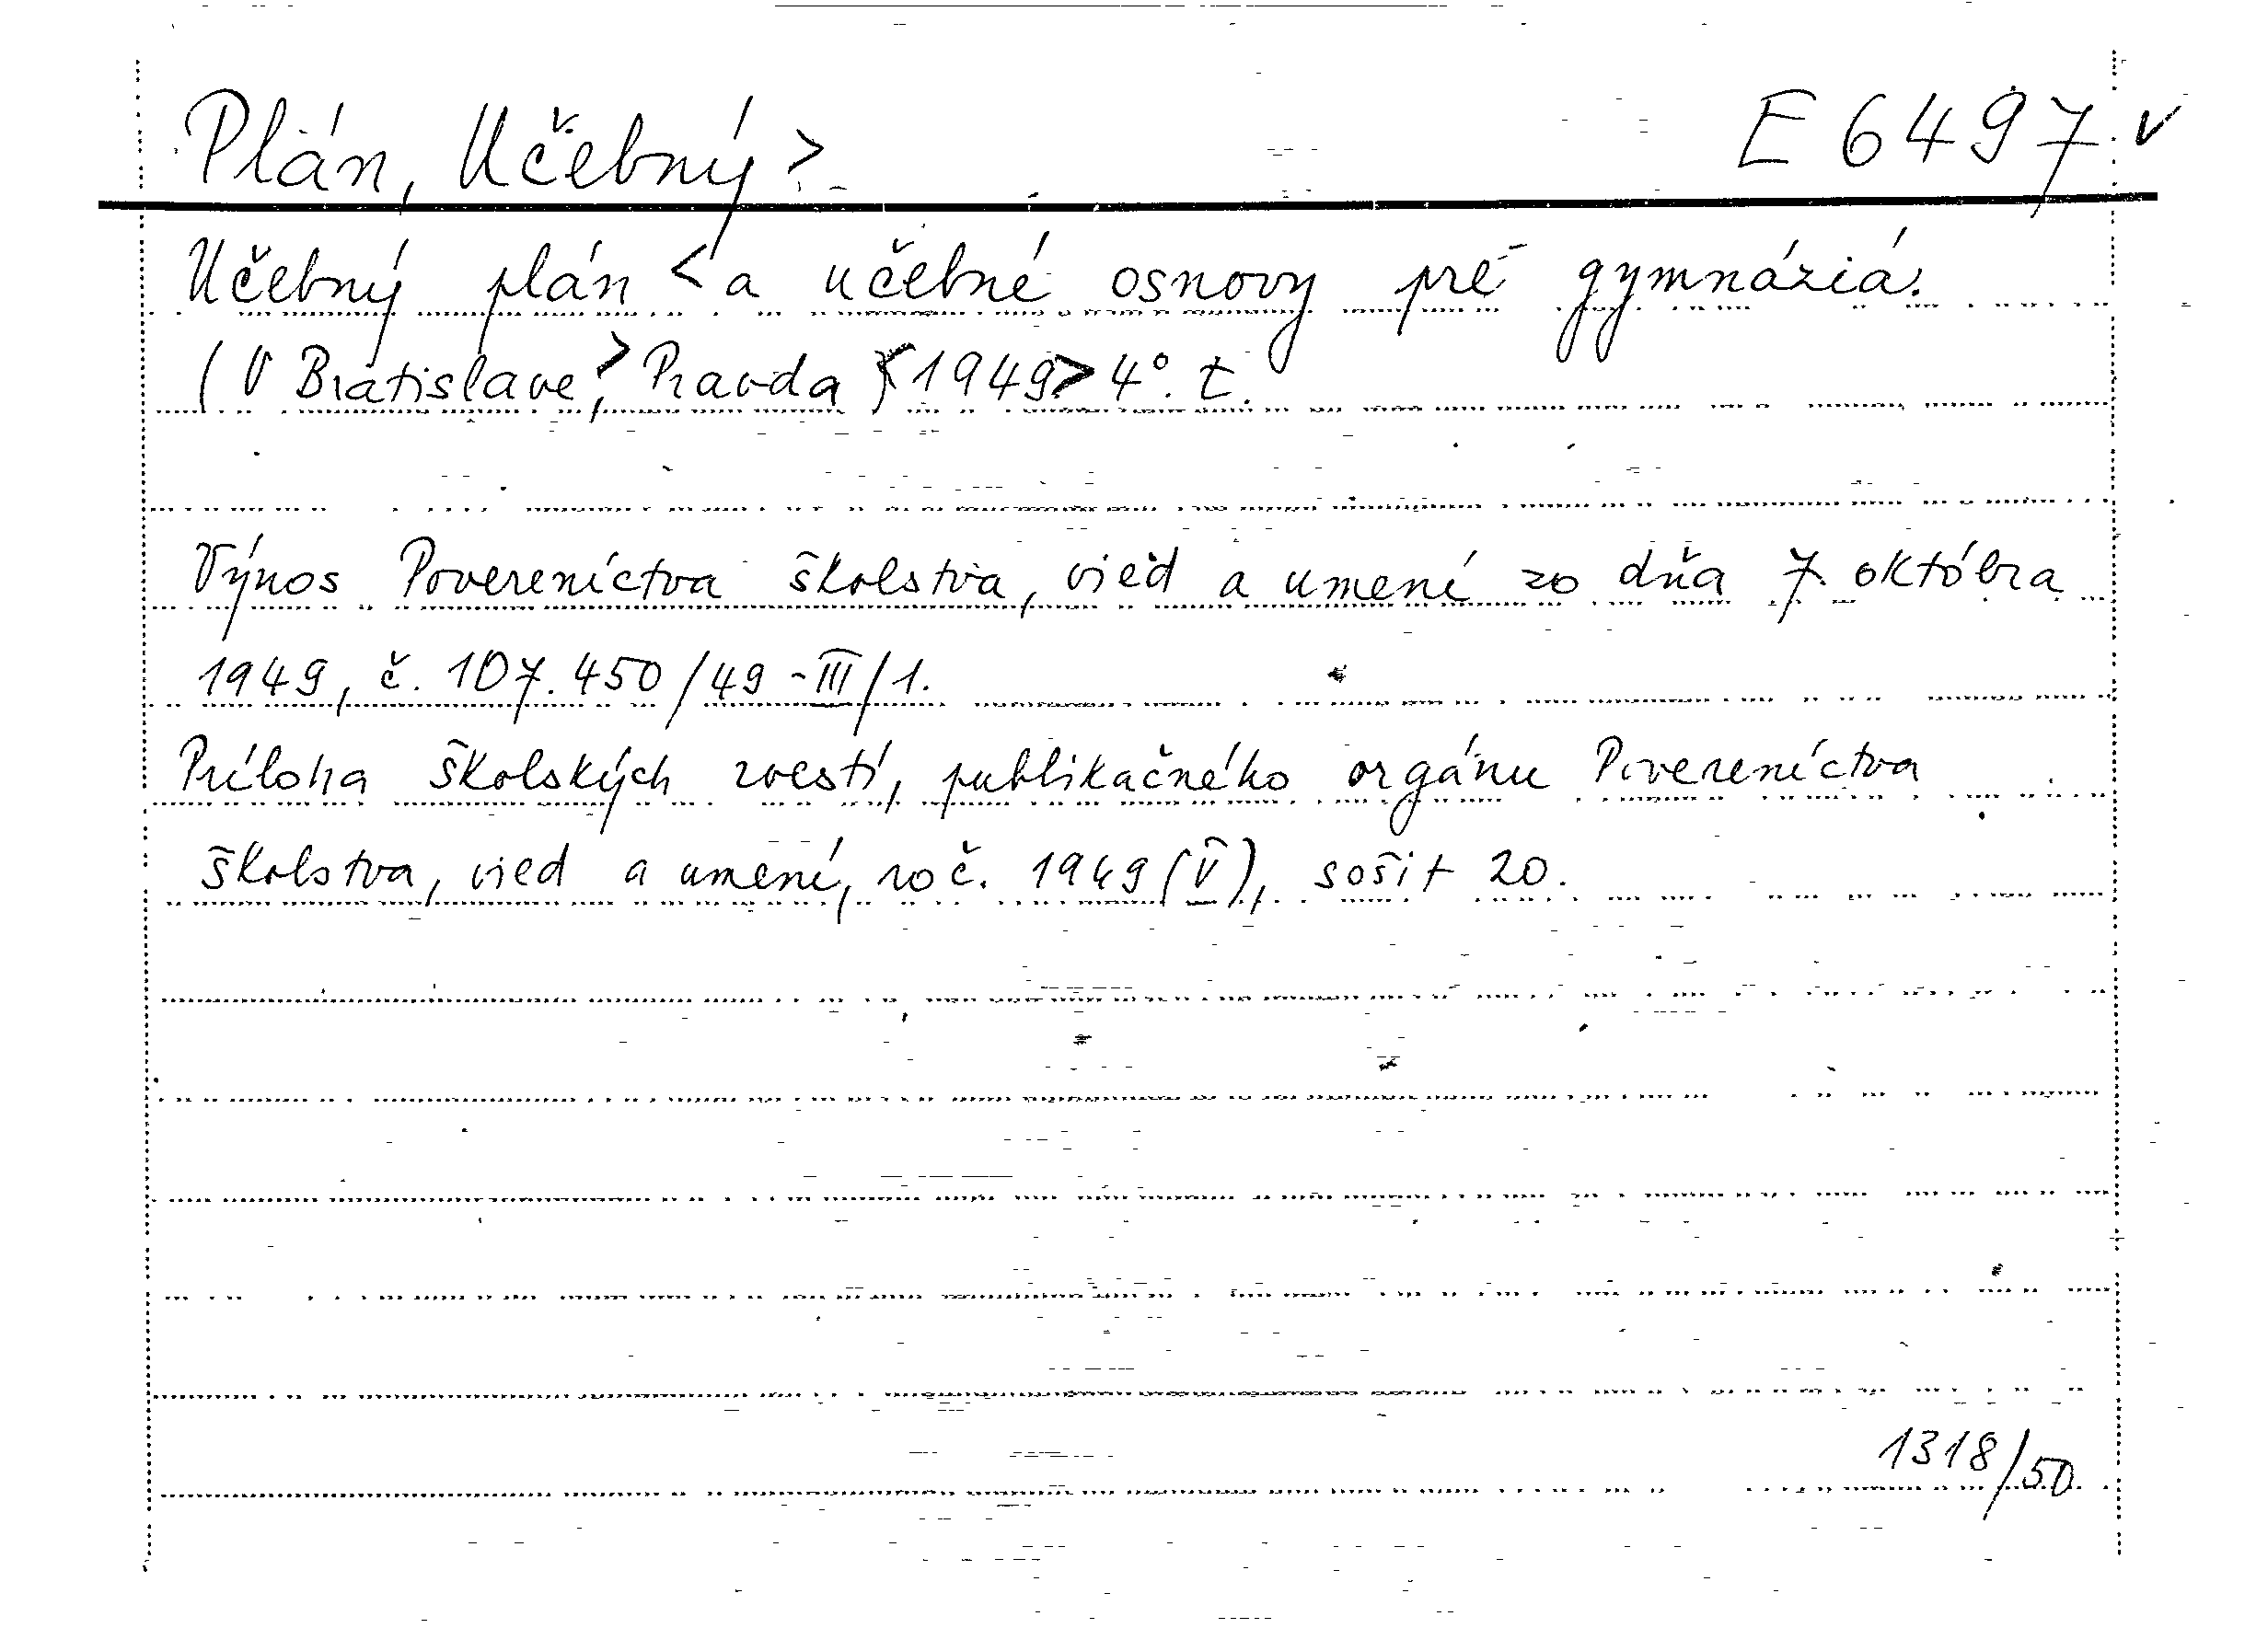 Plán, Učebný > E 6497 v
Učebný plán < a učebné osnovy pre gymnáziá.
(V Bratislave, > Pravda < 1949 > 4°. t.
Výnos Povereníctva školstva, vied a umení zo dňa 7. októbra
1949, č. 107.450/49-III/1.
Príloha školských zvestí, publikačného orgánu Povereníctva
školstva, vied a umení, roč. 1949 (V), sošit 20.
1318/50